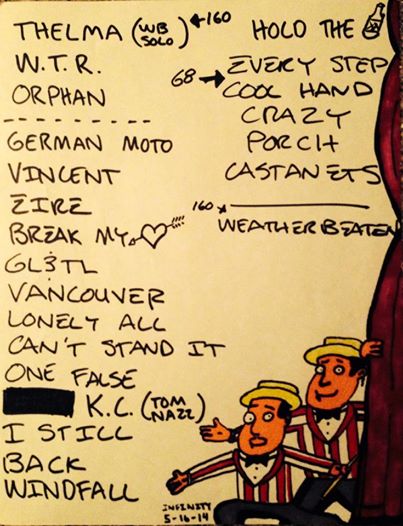 THELMA (WB SOLO) ←160
W.T.R.
ORPHAN
GERMAN MOTO
VINCENT
EIRE
BREAK MY
GL&TL
VANCOUVER
LONELY ALL
CAN'T STAND IT
ONE FALSE
K.C. (TOM NAZZ)
I STILL
BACK
WINDFALL
HOLD THE
EVERY STEP
68→ COOL HAND
CRAZY
PORCH
CASTANETS
160
WEATHERBEATEN
INFINITY
5-16-14